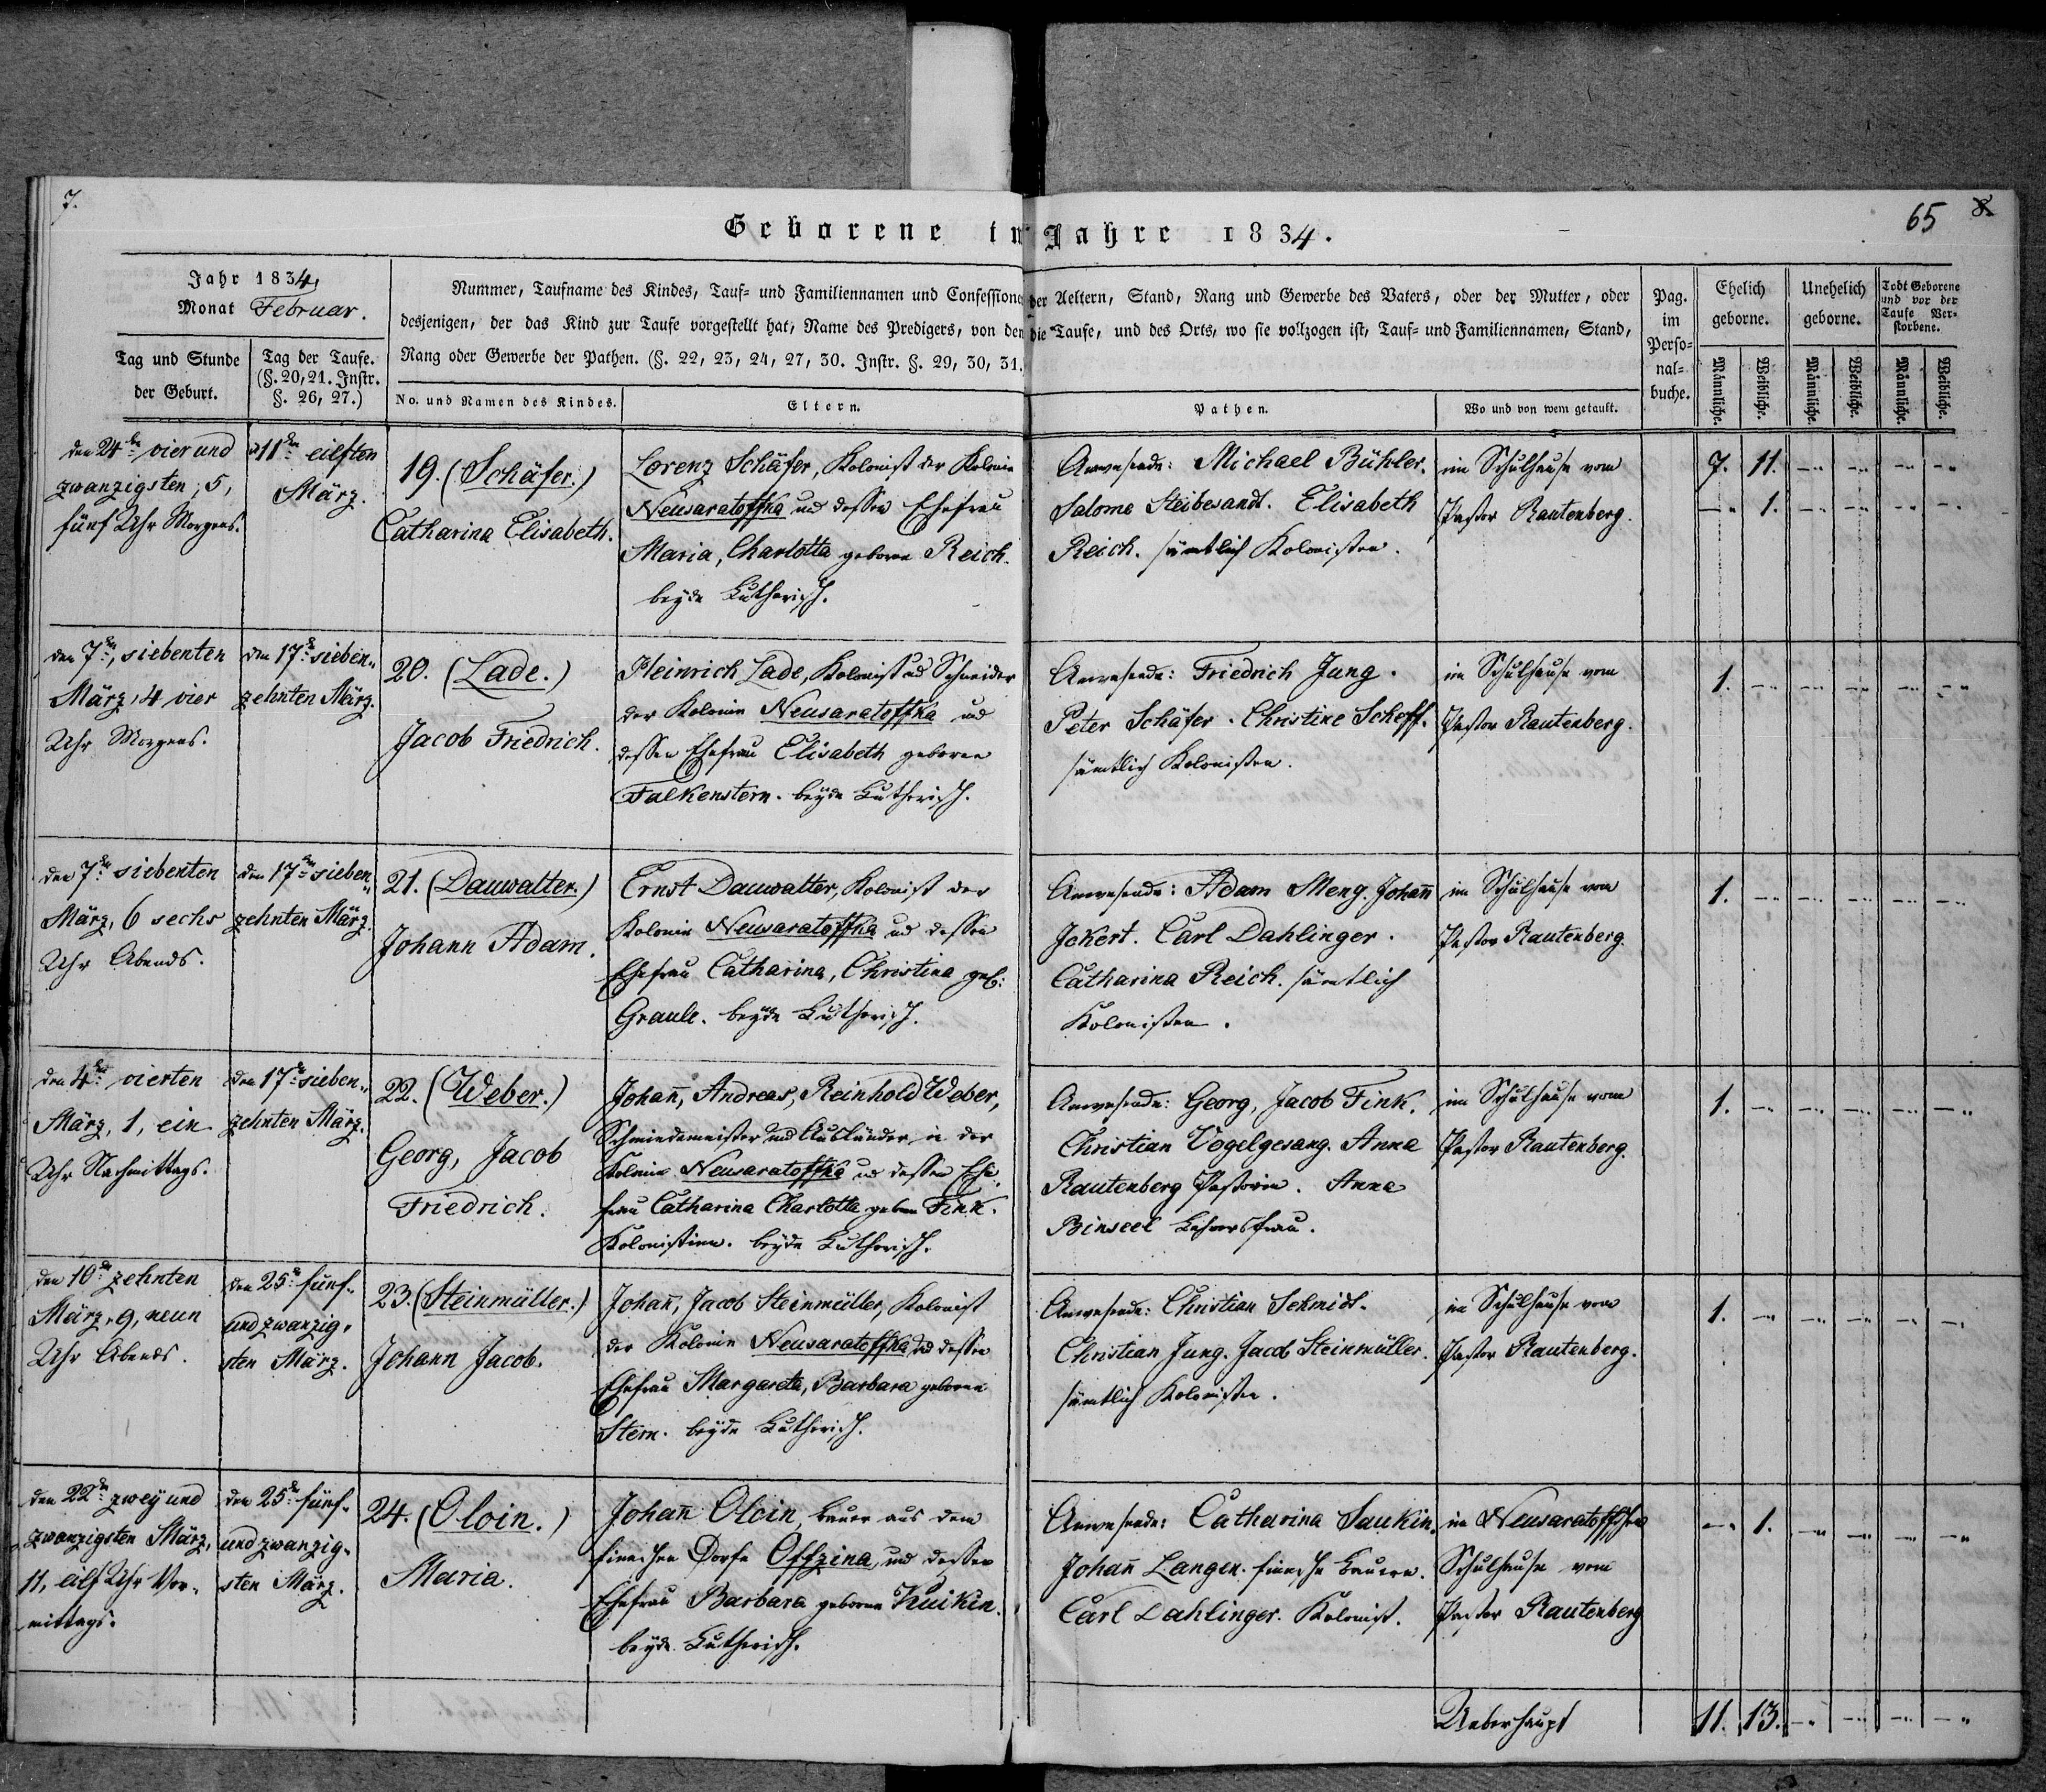 7.
65 8.
Geborene im Jahre 1834.
Jahr 1834,
Monat Februar.
Tag und Stunde
der Geburt.
Tag der Taufe.
(§. 20, 21. Instr.
§. 26, 27.)
Nummer, Taufname des Kindes, Tauf- und Familiennamen und Confessionen der Aeltern, Stand, Rang und Gewerbe des Vaters, oder der Mutter, oder
desjenigen, der das Kind zur Taufe vorgestellt hat, Name des Predigers, von dem die Taufe, und des Orts, wo sie vollzogen ist, Tauf- und Familiennamen, Stand,
Rang oder Gewerbe der Pathen. (§. 22, 23, 24, 27, 30. Instr. §. 29, 30, 31.
No. und Namen des Kindes.
Eltern.
Pathen.
Wo und von wem getauft.
Pag.
im
Perso-
nal-
buche.
Ehelich
geborne.
Unehelich
geborne.
Todt Geborene
und vor der
Taufe Ver-
storbene.
Männliche.
Weibliche.
Männliche.
Weibliche.
Männliche.
Weibliche.
den 24ten vier und
zwanzigsten, 5,
fünf Uhr Morgens.
11ten eilften
März.
19. (Schäfer.)
Catharina Elisabeth.
Lorenz Schäfer, Kolonist der Kolonie
Neusaratoffka und dessen Ehefrau
Maria, Charlotta geborne Reich.
beyde Lutherisch.
Anwesende: Michael Bühler.
Salome Steibesandt. Elisabeth
Reich. sämtlich Kolonisten.
im Schulhause vom
Pastor Rautenberg.
7. 11. -- -- -- --
-- 1. -- -- -- --
den 7ten, siebenten
März, 4 vier
Uhr Morgens.
den 17ten sieben-
zehnten März.
20. (Lade.)
Jacob Friedrich.
Heinrich Lade, Kolonist und Schneider
der Kolonie Neusaratoffka und
dessen Ehefrau Elisabeth geborne
Falkenstern. beyde Lutherisch.
Anwesende: Friedrich Jung.
Peter Schäfer. Christine Schoff.
sämtlich Kolonisten.
im Schulhause vom
Pastor Rautenberg.
1. -- -- -- -- --
den 7ten siebenten
März, 6 sechs
Uhr Abends.
den 17ten sieben-
zehnten März.
21. (Dauwalter.)
Johann Adam.
Ernst Dauwalter, Kolonist der
Kolonie Neusaratoffka und dessen
Ehefrau Catharina, Christina geb:
Graule. beyde Lutherisch.
Anwesende: Adam Meng. Johan̄
Jckert. Carl Dahlinger.
Catharina Reich. sämtlich
Kolonisten.
im Schulhause vom
Pastor Rautenberg.
1. -- -- -- -- --
den 4ten vierten
März, 1, ein
Uhr Nachmittags.
den 17ten sieben-
zehnten März.
22. (Weber.)
Georg, Jacob
Friedrich.
Johan̄, Andreas, Reinhold Weber,
Schmiedemeister und Ausländer in der
Kolonie Neusaratoffka und dessen Ehe-
frau Catharina Charlotta geborne Fink.
Kolonistinn. beyde Lutherisch.
Anwesende: Georg, Jacob Fink.
Christian Vogelgesang. Anna
Rautenberg Pastorin. Anna
Binseel Lehrersfrau.
im Schulhause vom
Pastor Rautenberg.
1. -- -- -- -- --
den 10ten zehnten
März, 9, neun
Uhr Abends.
den 25ten fünf-
und zwanzig-
sten März.
23. (Steinmüller.)
Johann Jacob.
Johan̄, Jacob Steinmüller, Kolonist
der Kolonie Neusaratoffka und dessen
Ehefrau Margareta, Barbara geborne
Stern. beyde Lutherisch.
Anwesende: Christian Schmidt.
Christian Jung. Jacob Steinmüller.
sämtlich Kolonisten.
im Schulhause vom
Pastor Rautenberg.
1. -- -- -- -- --
den 22ten zwey und
zwanzigsten März,
11, eilf Uhr Vor-
mittags.
den 25ten fünf-
und zwanzig-
sten März.
24. (Oloin.)
Maria.
Johan̄ Oloin, Bauer aus dem
finnschen Dorfe Offzina, und dessen
Ehefrau Barbara geborne Kuikin.
beyde Lutherisch.
Anwesende: Catharina Saukin.
Johan̄ Langen. finnsche Bauern.
Carl Dahlinger. Kolonist.
im Neusaratoffschen
Schulhause vom
Pastor Rautenberg
-- 1. -- -- -- --
Ueberhaupt
11. 13. -- -- -- --